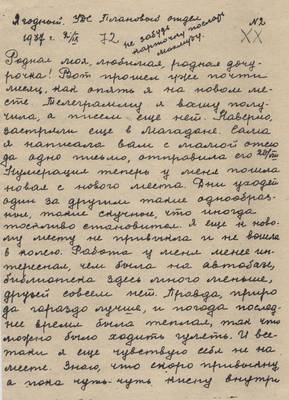 Ягодный. УДС Плановый отдел
1937 2/IX 72 N2
не забудь
карточку послать
XX
Родная моя, любимая, родная дочу-
рочка! Вот прошел уже почти
месяц, как опять я на новом ме-
сте. Телеграмму я вашу полу-
чила, а писем еще нет. Наверно,
застряли еще в Магадане. Сама
я написала вам с мамой отсю
да одно письмо, отправила его
Нумерация теперь у меня пошла
новая с нового места. Дни уходят
один за другим такие однообраз-
ные, такие скучные, что иногда
тоскливо становится. Я еще к ново-
му месту не привыкла и не вошла
в колею. Работа у меня менее ин-
тересная, чем была на автобазе,
библиотека здесь много меньше,
друзей совсем нет. Правда, приро
да гораздо лучше, и погода послед-
нее время была теплая, так что
можно было ходить гулять. И все-
таки я еще чувствую себя не на
месте. Знаю, что скоро привыкну,
а пока чуть-чуть кисну внутри